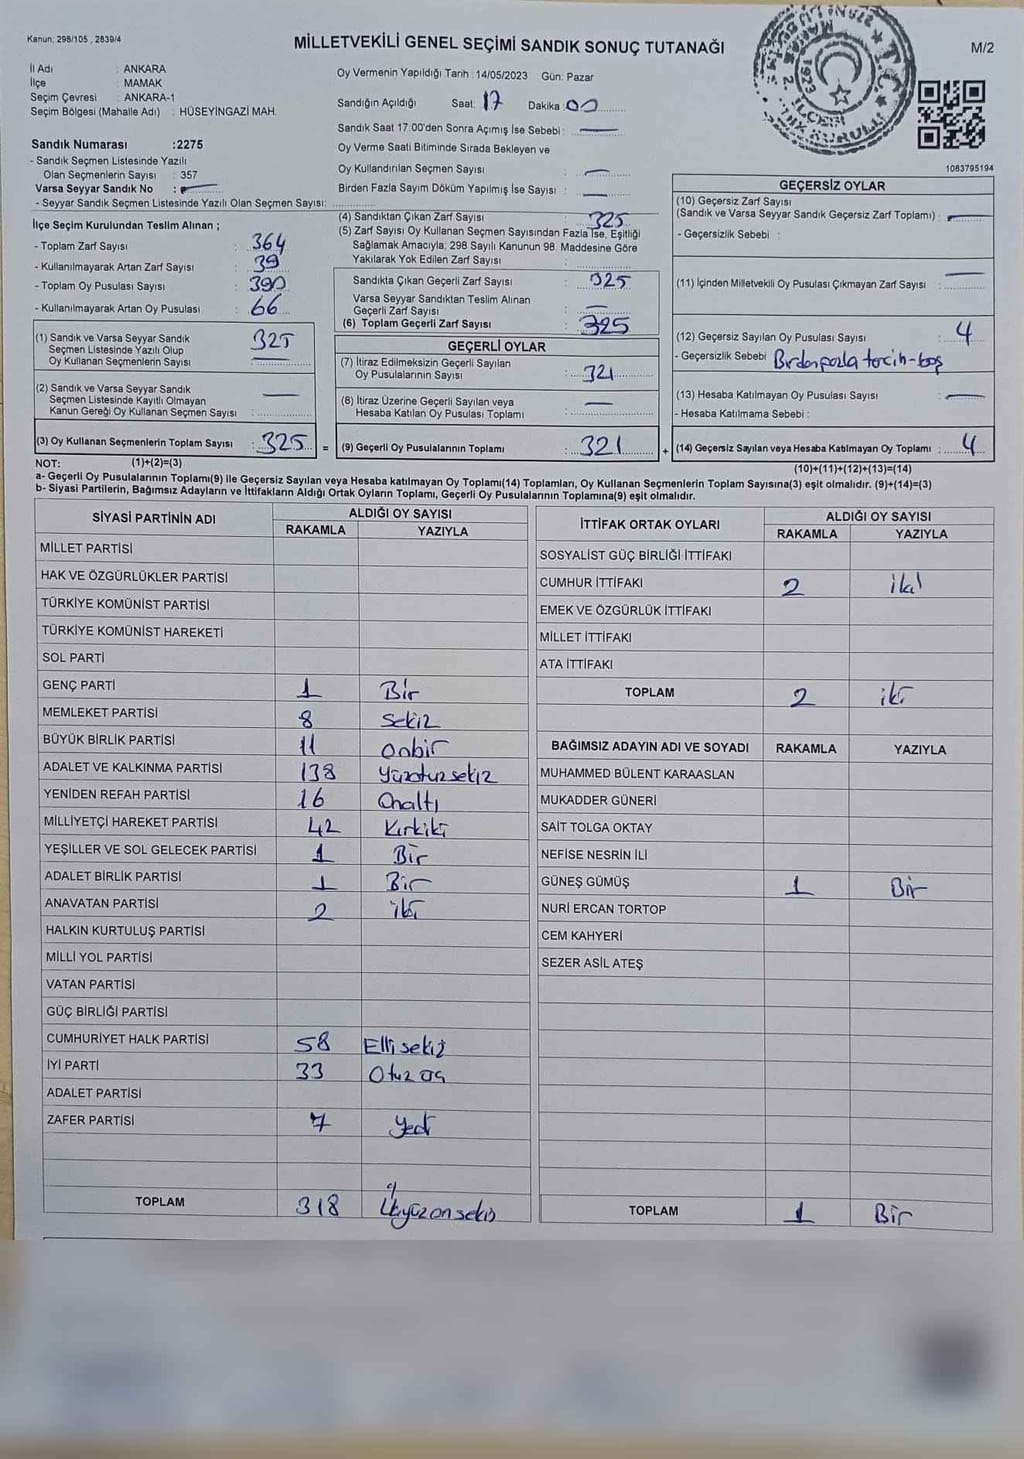 Kanun: 298/105 , 2839/4
MİLLETVEKİLİ GENEL SEÇİMİ SANDIK SONUÇ TUTANAĞI
M/2
İl Adı : ANKARA
İlçe : MAMAK
Seçim Çevresi : ANKARA-1
Seçim Bölgesi (Mahalle Adı) : HÜSEYİNGAZİ MAH.
Oy Vermenin Yapıldığı Tarih : 14/05/2023 Gün: Pazar
Sandığın Açıldığı Saat: 17 Dakika 00
Sandık Saat 17:00'den Sonra Açımış İse Sebebi :
Oy Verme Saati Bitiminde Sırada Bekleyen ve
Oy Kullandırılan Seçmen Sayısı :
Birden Fazla Sayım Döküm Yapılmış İse Sayısı :
Sandık Numarası :2275
- Sandık Seçmen Listesinde Yazılı
Olan Seçmenlerin Sayısı : 357
Varsa Seyyar Sandık No :
- Seyyar Sandık Seçmen Listesinde Yazılı Olan Seçmen Sayısı:
1083795194
İlçe Seçim Kurulundan Teslim Alınan ;
- Toplam Zarf Sayısı : 364
- Kullanılmayarak Artan Zarf Sayısı : 39
- Toplam Oy Pusulası Sayısı : 390
- Kullanılmayarak Artan Oy Pusulası : 66
(1) Sandık ve Varsa Seyyar Sandık
Seçmen Listesinde Yazılı Olup
Oy Kullanan Seçmenlerin Sayısı : 325
(2) Sandık ve Varsa Seyyar Sandık
Seçmen Listesinde Kayıtlı Olmayan
Kanun Gereği Oy Kullanan Seçmen Sayısı :
(3) Oy Kullanan Seçmenlerin Toplam Sayısı : 325 =
(4) Sandıktan Çıkan Zarf Sayısı : 325
(5) Zarf Sayısı Oy Kullanan Seçmen Sayısından Fazla İse, Eşitliği
Sağlamak Amacıyla; 298 Sayılı Kanunun 98. Maddesine Göre
Yakılarak Yok Edilen Zarf Sayısı :
Sandıkta Çıkan Geçerli Zarf Sayısı : 325
Varsa Seyyar Sandıktan Teslim Alınan
Geçerli Zarf Sayısı :
(6) Toplam Geçerli Zarf Sayısı : 325
GEÇERLİ OYLAR
(7) İtiraz Edilmeksizin Geçerli Sayılan
Oy Pusulalarının Sayısı : 321
(8) İtiraz Üzerine Geçerli Sayılan veya
Hesaba Katılan Oy Pusulası Toplamı :
(9) Geçerli Oy Pusulalarının Toplamı : 321 +
GEÇERSİZ OYLAR
(10) Geçersiz Zarf Sayısı
(Sandık ve Varsa Seyyar Sandık Geçersiz Zarf Toplamı) :
- Geçersizlik Sebebi :
(11) İçinden Milletvekili Oy Pusulası Çıkmayan Zarf Sayısı :
(12) Geçersiz Sayılan Oy Pusulası Sayısı : 4
- Geçersizlik Sebebi : Birden fazla tercih-boş
(13) Hesaba Katılmayan Oy Pusulası Sayısı :
- Hesaba Katılmama Sebebi :
(14) Geçersiz Sayılan veya Hesaba Katılmayan Oy Toplamı : 4
NOT: (1)+(2)=(3)
(10)+(11)+(12)+(13)=(14)
a- Geçerli Oy Pusulalarının Toplamı(9) ile Geçersiz Sayılan veya Hesaba katılmayan Oy Toplamı(14) Toplamları, Oy Kullanan Seçmenlerin Toplam Sayısına(3) eşit olmalıdır. (9)+(14)=(3)
b- Siyasi Partilerin, Bağımsız Adayların ve İttifakların Aldığı Ortak Oyların Toplamı, Geçerli Oy Pusulalarının Toplamına(9) eşit olmalıdır.
SİYASİ PARTİNİN ADI
ALDIĞI OY SAYISI
RAKAMLA YAZIYLA
MİLLET PARTİSİ
HAK VE ÖZGÜRLÜKLER PARTİSİ
TÜRKİYE KOMÜNİST PARTİSİ
TÜRKİYE KOMÜNİST HAREKETİ
SOL PARTİ
GENÇ PARTİ 1 Bir
MEMLEKET PARTİSİ 8 Sekiz
BÜYÜK BİRLİK PARTİSİ 11 Onbir
ADALET VE KALKINMA PARTİSİ 138 Yüzotuzsekiz
YENİDEN REFAH PARTİSİ 16 Onaltı
MİLLİYETÇİ HAREKET PARTİSİ 42 Kırkiki
YEŞİLLER VE SOL GELECEK PARTİSİ 1 Bir
ADALET BİRLİK PARTİSİ 1 Bir
ANAVATAN PARTİSİ 2 iki
HALKIN KURTULUŞ PARTİSİ
MİLLİ YOL PARTİSİ
VATAN PARTİSİ
GÜÇ BİRLİĞİ PARTİSİ
CUMHURİYET HALK PARTİSİ 58 Elli sekiz
İYİ PARTİ 33 Otuz üç
ADALET PARTİSİ
ZAFER PARTİSİ 7 Yedi
TOPLAM 318 Üçyüzonsekiz
İTTİFAK ORTAK OYLARI
ALDIĞI OY SAYISI
RAKAMLA YAZIYLA
SOSYALİST GÜÇ BİRLİĞİ İTTİFAKI
CUMHUR İTTİFAKI 2 iki
EMEK VE ÖZGÜRLÜK İTTİFAKI
MİLLET İTTİFAKI
ATA İTTİFAKI
TOPLAM 2 iki
BAĞIMSIZ ADAYIN ADI VE SOYADI RAKAMLA YAZIYLA
MUHAMMED BÜLENT KARAASLAN
MUKADDER GÜNERİ
SAİT TOLGA OKTAY
NEFİSE NESRİN İLİ
GÜNEŞ GÜMÜŞ 1 Bir
NURİ ERCAN TORTOP
CEM KAHYERİ
SEZER ASİL ATEŞ
TOPLAM 1 Bir